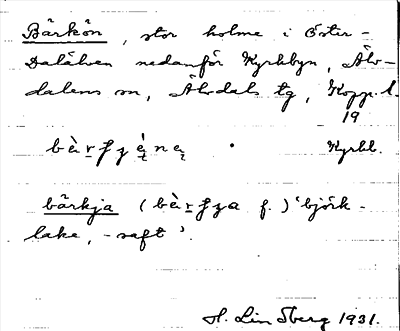 Bärkön, stor holme i Öster-
Dalälven nedanför Kyrkbyn, Älv-
dalens sn, Älvdals tg, Kopp. l.
19
Kyrkb.
bärkja (bèrfza f.) 'björk-
lake, -saft'.
H. Lindberg 1931.